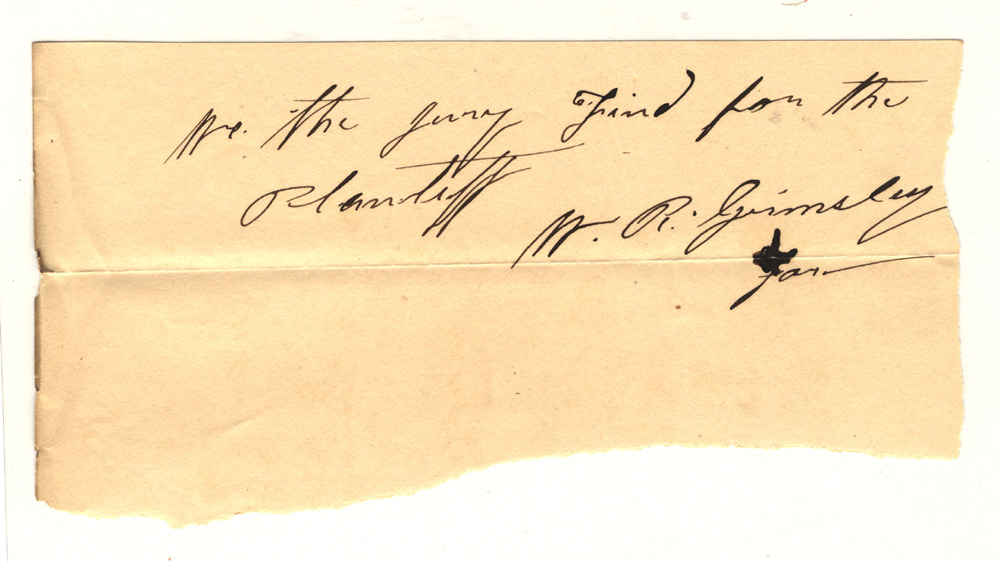 We. the jury Find for the
Plantiff
W. R. Grimsley
For